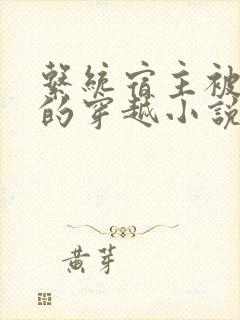 繫統宿主被
的穿越小說
黃芽